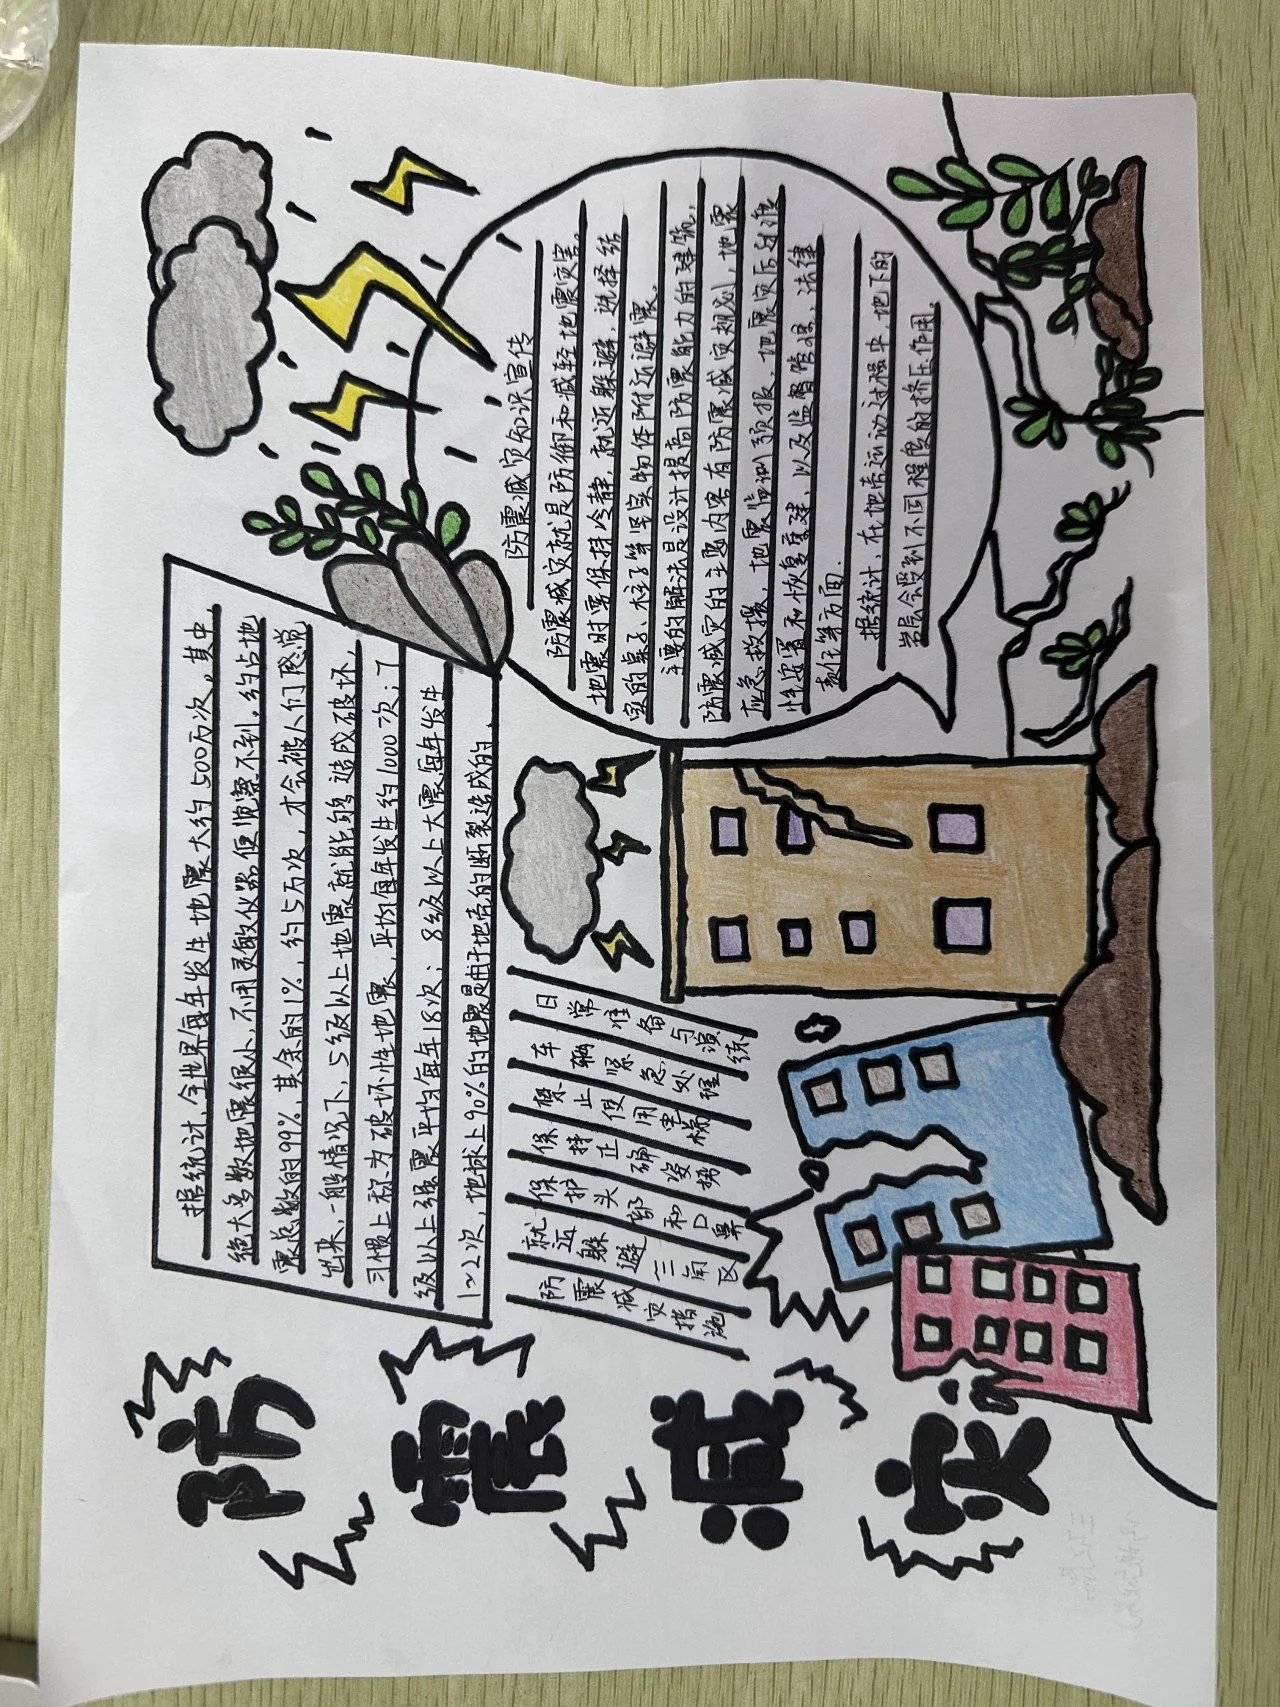 防震减灾
据统计,全世界每年发生地震大约500万次,其中
绝大多数地震很小,不用灵敏仪器便觉察不到,约占地
震总数的99%,其余的1%,约5万次,才会被人们感觉
出来,一般情况下,5级以上地震就能够造成破坏,
习惯上称为破坏性地震,平均每年发生约1000次;7
级以上强震平均每年18次;8级以上大震每年发生
1~2次,地球上90%的地震是由于地壳的断裂造成的.
防震减灾措施
就近躲避三角区
保护头部和口鼻
保持正确姿势
禁止使用电梯
车辆紧急处理
日常准备与演练
防震减灾知识宣传
防震减灾就是防御和减轻地震灾害。
地震时需保持冷静,就近躲避,选择结
实的桌子、柱子等坚实物体附近避震。
主要的解法是设计提高防震能力的建筑,
防震减灾的主要内容有防震减灾规划,地震
应急救援,地震监测预报、地震灾后过渡
性安置和恢复重建,以及监督管理、法律
责任等方面.
据统计,在地壳运动过程中,地下的
岩层会受到不同程度的挤压作用.